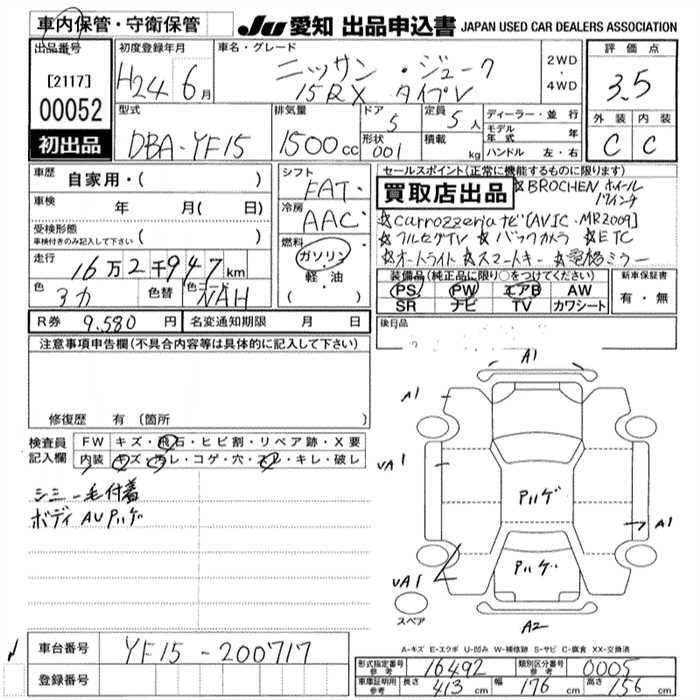 車内保管・守衛保管
JU 愛知 出品申込書 JAPAN USED CAR DEALERS ASSOCIATION
出品番号
[2117]
00052
初出品
初度登録年月
H24 6月
車名・グレード
ニッサン・ジューク
15RX タイプV
2WD
・
4WD
評価点
3.5
外装 内装
C C
型式
DBA-YF15
排気量
1500cc
ドア
5
形状
001
定員
5人
積載
kg
ディーラー・並行
モデル年式 年
ハンドル 左・右
車歴
自家用・( )
車検
年 月( 日)
受検形態
車検付きのみ記入して下さい ( )
走行
16万2千947km
色
3カ
色替
色コード
NAH
シフト
FAT
冷房
AAC
燃料
ガソリン
・
軽・油
( )
セールスポイント(正常に機能するものに限ります)
買取店出品
☆BROCHENホイール
☆carrozzeriaナビ[AVIC-MR2009]
☆フルセグTV ☆バックカメラ ☆ETC
☆オートライト ☆スマートキー ☆電格ミラー
装備品(純正品に限り○をつけてください)
PS PW エアB AW
SR ナビ TV カワシート
新車保証書
有・無
R券 9.580 円
名変通知期限 月 日
後日品
注意事項申告欄(不具合内容等は具体的に記入して下さい)
修復歴 有 (箇所 )
検査員
記入欄
FW キズ・飛石・ヒビ割・リペア跡・X要
内装 キズ・汚レ・コゲ・穴・スレ・キレ・破レ
シミ 毛付着
ボディ AUPハゲ
A1
A1
VA1
Pハゲ
A1
Pハゲ
VA1
A2
スペア
A-キズ E-エクボ U-凹み W-補修跡 S-サビ C-腐食 XX-交換済
車台番号 YF15-200717
登録番号
形式指定番号 参考 16492
類別区分番号 参考 0005
車庫証明用 参考 長さ 413cm 幅 176cm 高さ 156cm